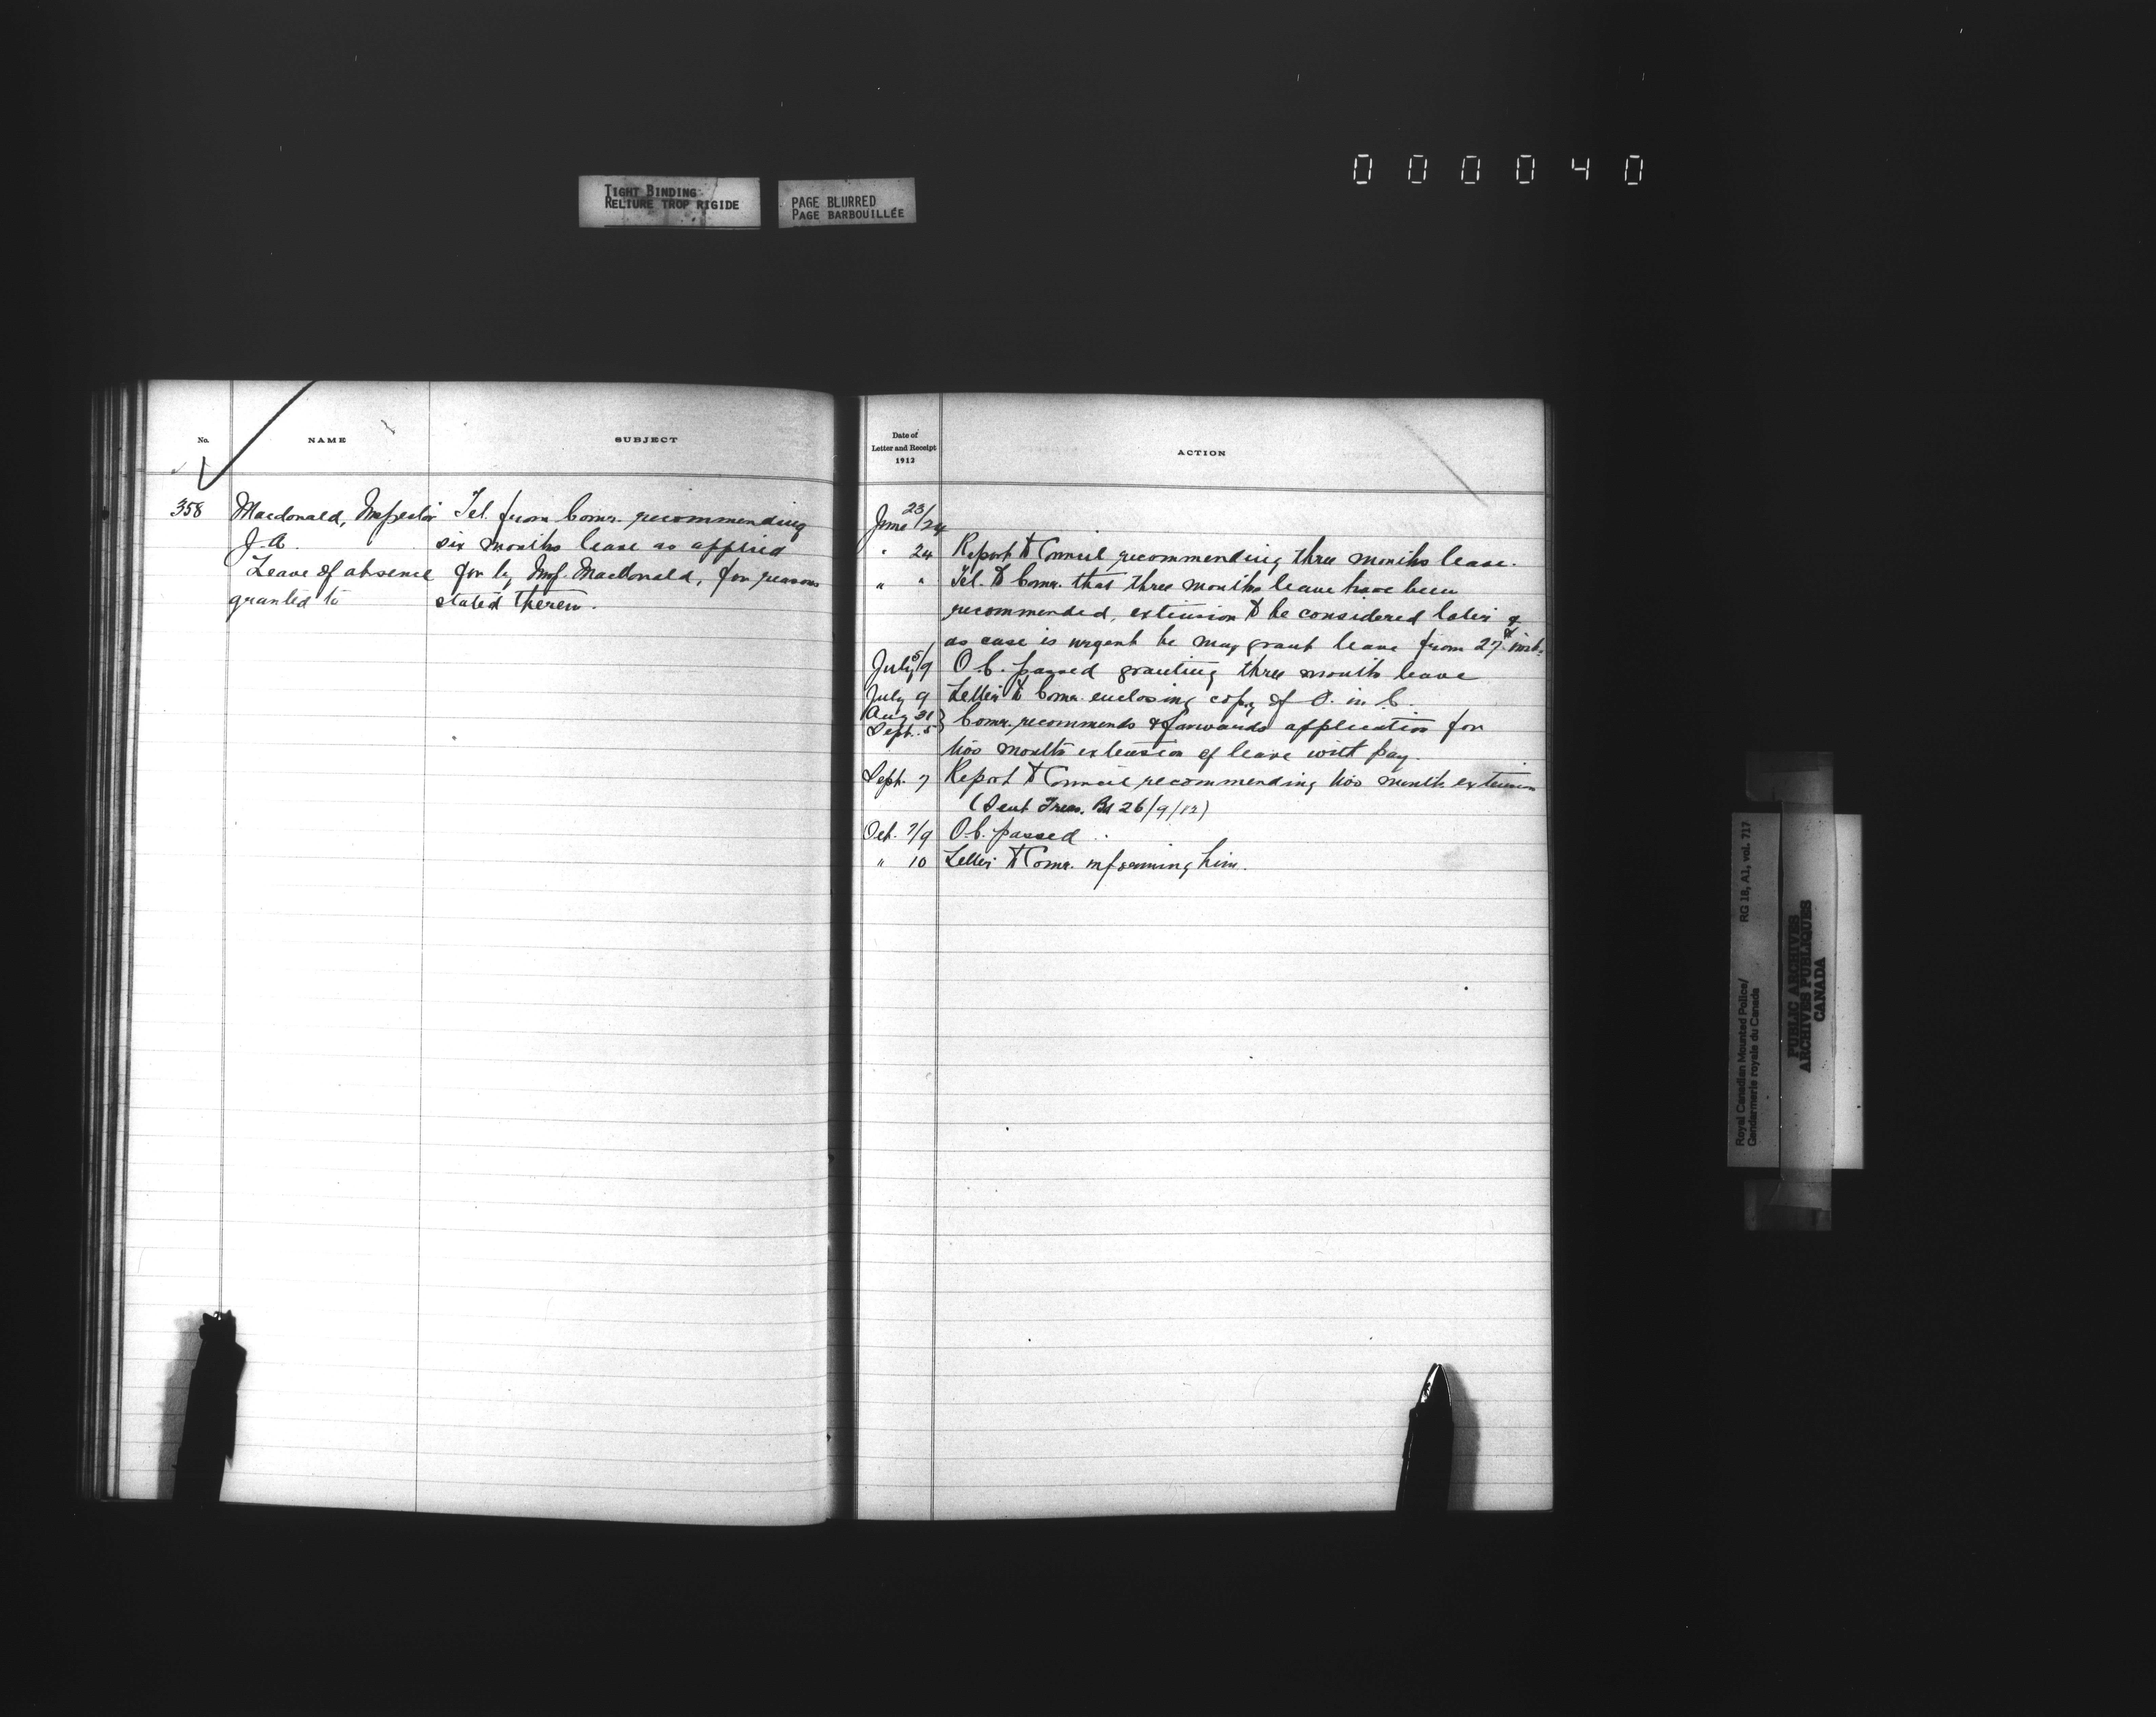 TIGHT BINDING
RELIURE TROP RIGIDE
PAGE BLURRED
PAGE BARBOUILLÉE
000040
No.
NAME
SUBJECT
358
Macdonald, Inspector
J. A.
Leave of absence
granted to
Tel. from Comr. recommending
six months leave as applied
for by Insp. Macdonald, for reasons
stated therein.
Date of
Letter and Receipt
1912
ACTION
June 23/24
" 24 Report to Council recommending three months leave.
" " Tel. to Comr. that three months leave have been
recommended, extension to be considered later &
as case is urgent he may grant leave from 27th inst.
July 5/9 O.C. passed granting three months leave
July 9 Letter to Comr. enclosing copy of O. in C.
Aug 31
Sept. 5 } Comr. recommends & forwards application for
two months extension of leave with pay.
Sept. 7 Report to Council recommending two months extension
(Sent Treas. Bd 26/9/12)
Oct. 7/9 O.C. passed
" 10 Letter to Comr. informing him.
Royal Canadian Mounted Police/
Gendarmerie royale du Canada
RG 18, A1, vol. 717
PUBLIC ARCHIVES
ARCHIVES PUBLIQUES
CANADA